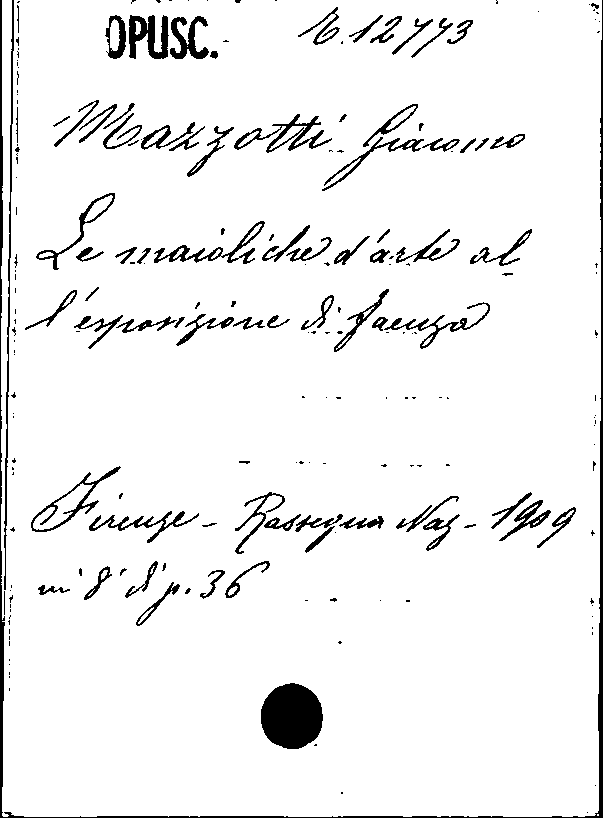 OPUSC. E.12773
Mazzotti Giacomo
Le maioliche d'arte al
l'esposizione di Faenza
Firenze - Rassegna Naz - 1909
in 8° di p. 36